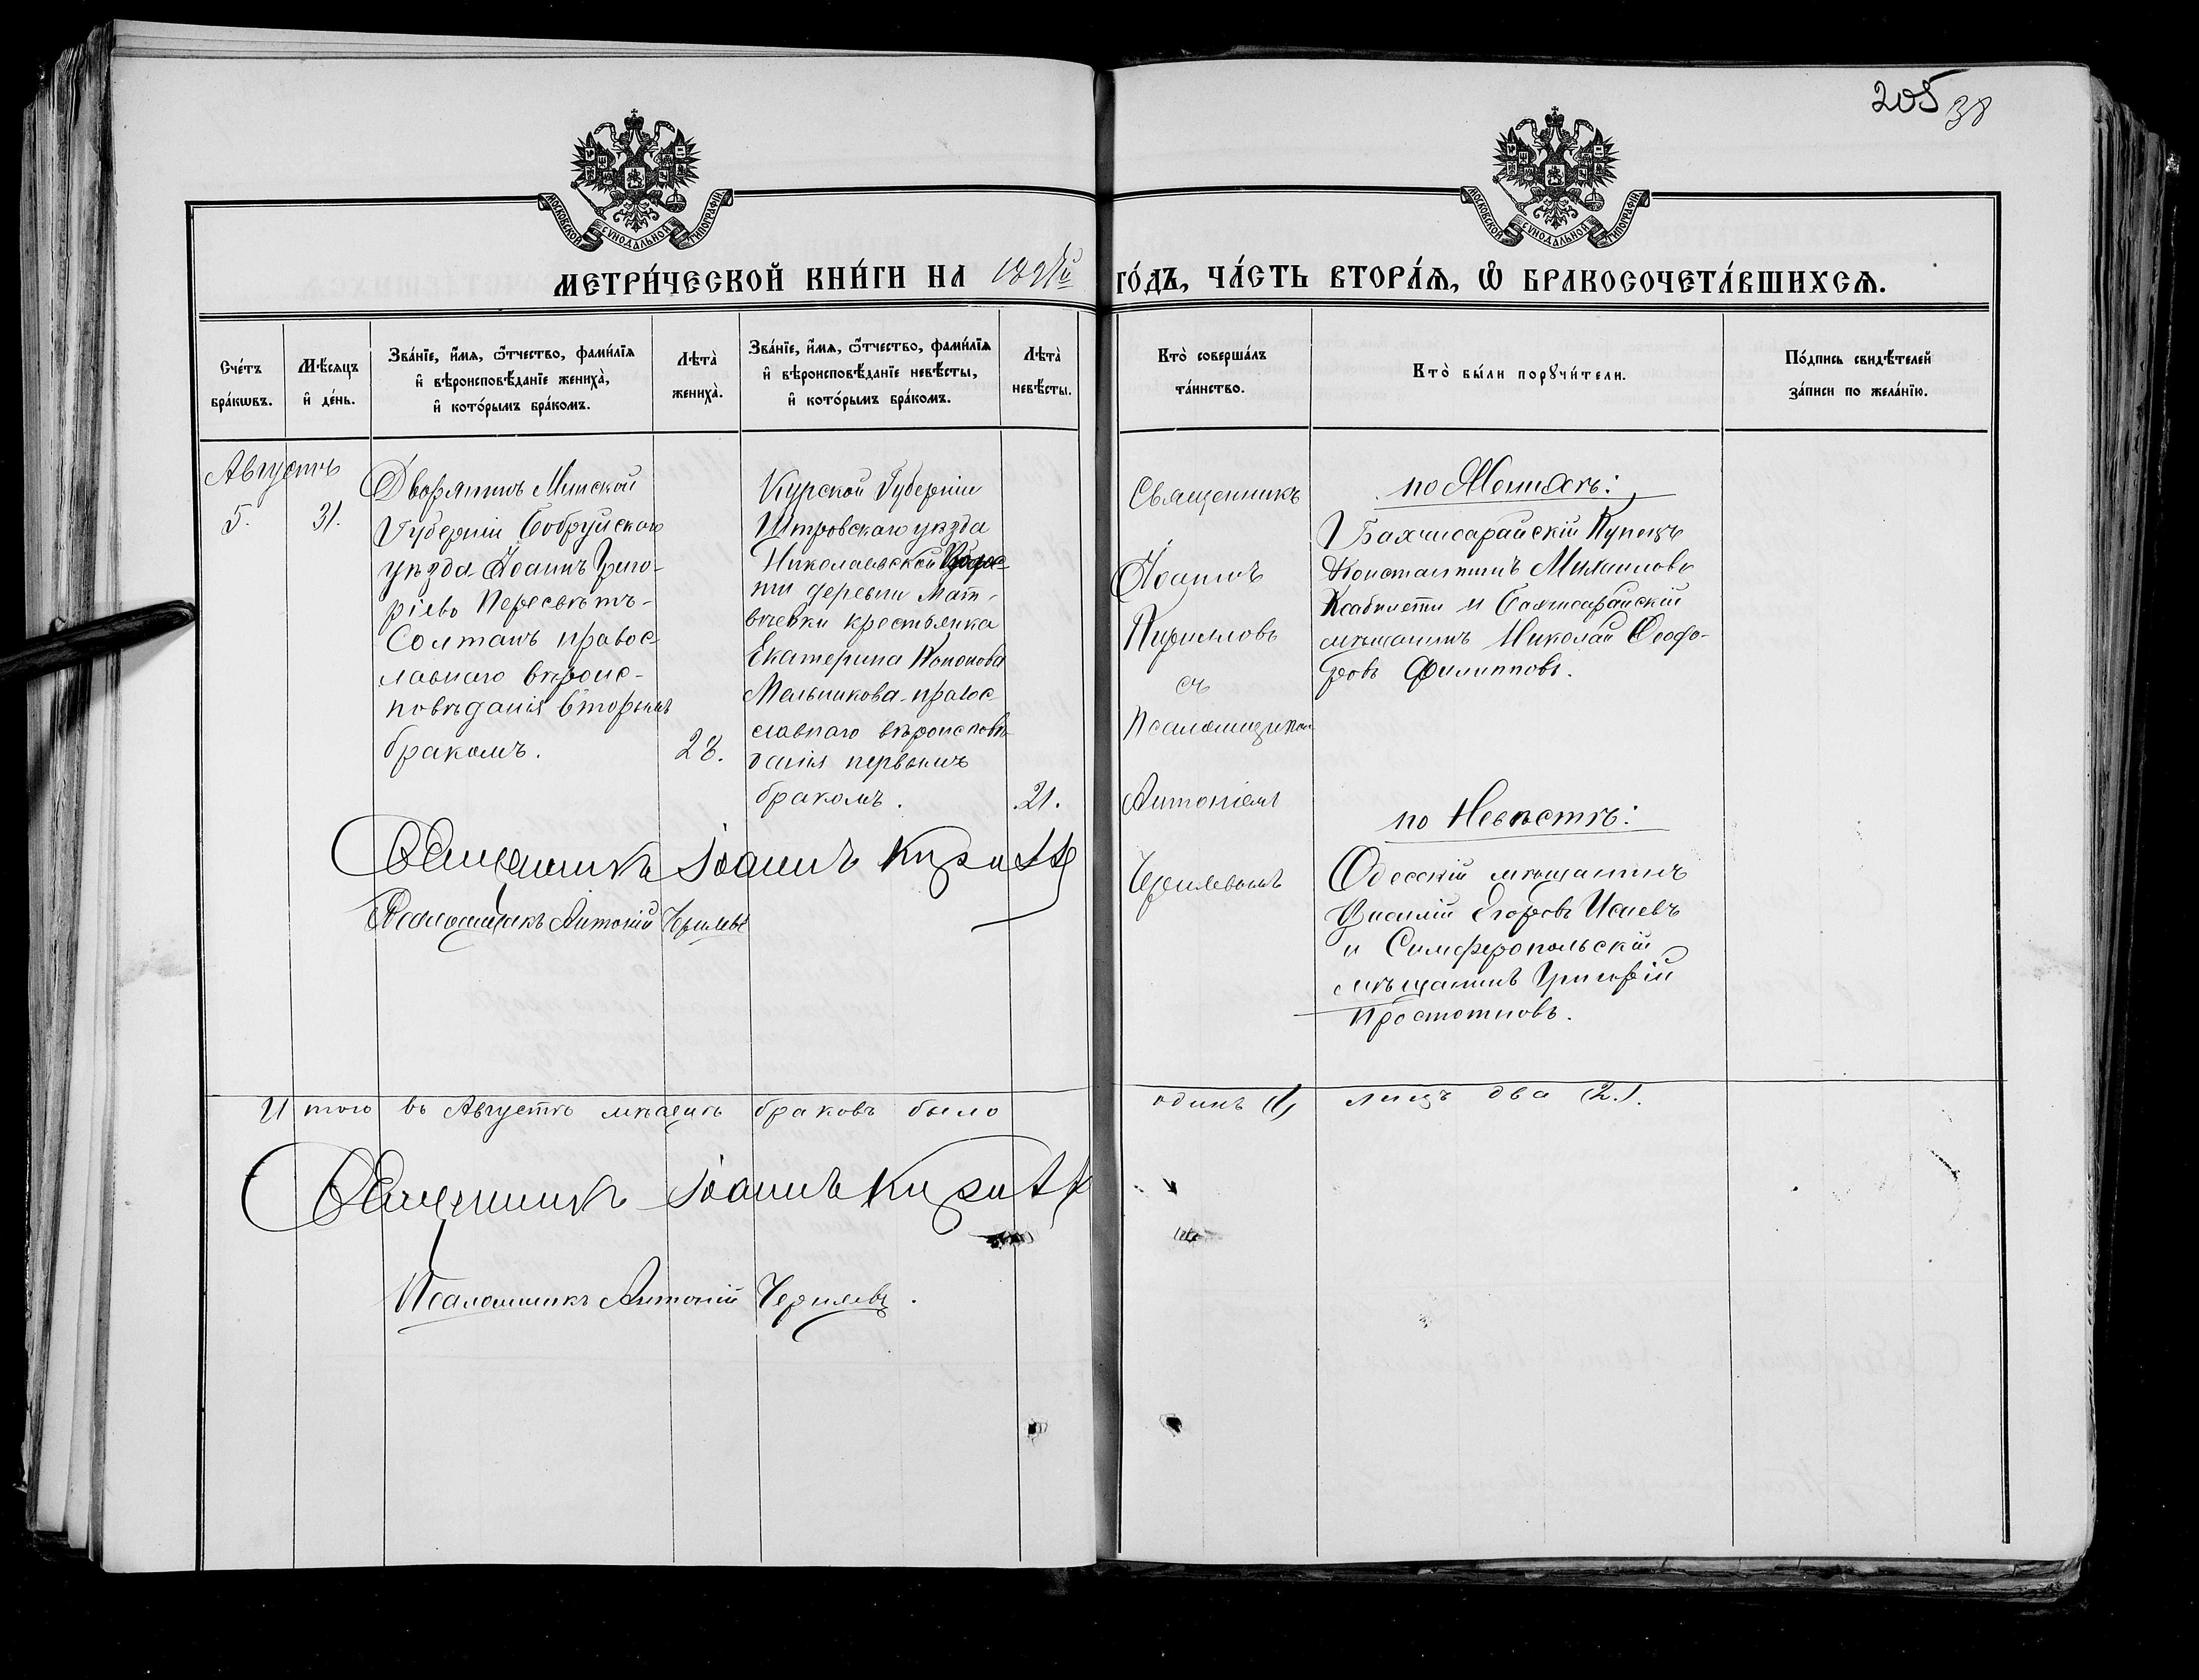 205 38
МОСКОВСКОЙ СУНОДАЛЬНОЙ ТИПОГРАФІИ.
МОСКОВСКОЙ СУНОДАЛЬНОЙ ТИПОГРАФІИ.
МЕТРИ́ЧЕСКОЙ КНИ́ГИ НА ГО́ДЪ, ЧА́СТЬ ВТОРА́Ѧ, Ѽ БРАКОСОЧЕТА́ВШИХСѦ.
Сче́тъ
бра́кѡвъ.
Мѣ́сѧцъ
и҆ де́нь.
Зва́нїе, и҆́мѧ, ѻ҆́тчество, фами́лїѧ
и҆ вѣроисповѣ́данїе жениха̀,
и҆ кото́рымъ бра́комъ.
Лѣта̀
жениха̀.
Зва́нїе, и҆́мѧ, ѻ҆́тчество, фами́лїѧ
и҆ вѣроисповѣ́данїе невѣ́сты,
и҆ кото́рымъ бра́комъ.
Лѣта̀
невѣ́сты.
Кто̀ соверша́лъ
та́инство.
Кто̀ бы́ли порꙋчи́тели.
По́дпись свидѣ́телей
за́писи по жела́нїю.
Августъ
5.
31.
Дворянинъ Минской
Губерніи Бобруйскаго
уѣзда Іоаннъ Григо-
ріевъ Пересвѣтъ-
Солтанъ правос-
лавнаго вѣроис-
повѣданія вторымъ
бракомъ.
28.
Курской Губерніи
уѣзда
Николаевской
ти деревни Мат-
вѣевки крестьянка
Екатерина Кононова
Мельникова правос-
славнаго вѣроисповѣ-
данія первымъ
бракомъ.
21.
Священникъ
Іоаннъ
Кирилловъ
съ
Псаломщикомъ
Антоніемъ
по Женихѣ:
Бахчисарайскій Купецъ
Константинъ Михаиловъ
и Бахчисарайскій
мѣщанинъ Николай Ѳеодо-
ровъ Филипповъ.
по Невѣстѣ:
Одесскій мѣщанинъ
Василій Егоровъ Исаевъ
и Симферопольскій
мѣщанинъ Григорій
Священникъ Іоаннъ
Псаломщикъ Антоній
Итого въ Августѣ мѣсяцѣ браковъ было одинъ (1) лицъ два (2.).
Священникъ Іоаннъ
Псаломщикъ Антоній